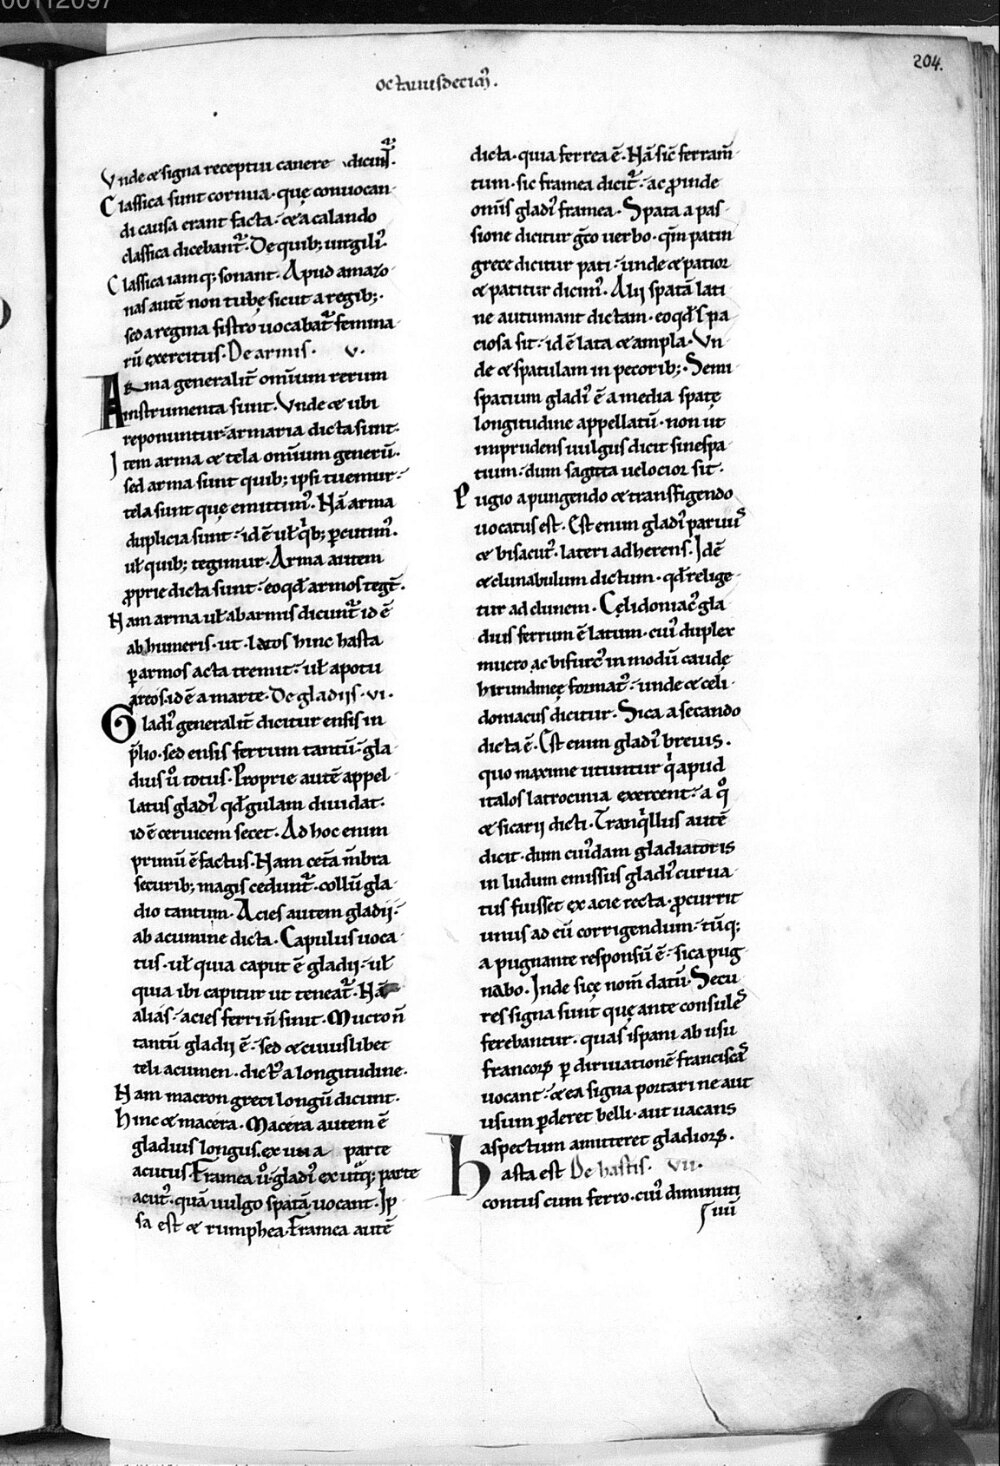 00112097
204.
octauusdecim᷒.
Vnde & signa receptui canere dicunt᷑.
Classica sunt cornua· quę conuocan
di causa erant facta· & a calando
classica dicebant᷑. De quib; uirgili᷒.
Classica iamq; sonant. Apud amazo
nas autē non tubę sicut a regib;·
sed a regina sistro uocabat᷑ femina
rū exercitus. De armis. V.
Arma generalit̄ omīum rerum
instrumenta sunt. Vnde & ubi
reponuntur armaria dicta sunt.
Item arma & tela omīum generū.
sed arma sunt quib; ipsi tuemur·
tela sunt quę emittim᷒. Nā arma
duplicia sunt· id ē uł qͥb; ꝑcutim᷒.
uł quib; tegimur. Arma autem
ꝓprie dicta sunt· eo qđ armos tegt̄.
Nam arma uł ab armis dicunt᷑ id ē
ab humeris· ut· latos huic hasta
ꝑ armos acta tremit· uł apo tu
areos· id ē a marte. De gladijs· VI.
Gladi᷒ generalit̄ dicitur ensis in
p̄lio· sed ensis ferrum tantū· gla
dius ů totus. Proprie autē appel
latus gladi᷒ qđ gulam diuidat.
id ē ceruicem secet. Ad hoc enim
primū ē factus. Nam cetā m̄bra
securib; magis cedunt᷑· collū gla
dio tantum. Acies autem gladij·
ab acumine dicta. Capulus uoca
tus· uł quia caput ē gladij· uł
quia ibi capitur ut teneat᷑. Nā
alias· acies ferri n̄ sinit. Mucro n̄
tantū gladij ē· sed & cuiuslibet
teli acumen· dict᷒ a longitudine.
Nam macron greci longū dicunt.
hinc & macera. Macera autem ē
gladius longus. ex una parte
acutus Framea ů· gladi᷒ ex utͣq; parte
acut᷒· quā uulgo spatā uocant. Ip
sa est & rumphea. Framea autē
dicta· quia ferrea ē. Nā sic̄ ferram̄
tum· sic framea dicit᷑· ac ꝓinde
om̄is gladi᷒ framea. Spata a pas
sione dicitur gͨco uerbo· qm̄ patin
grece dicitur pati· unde & patior
& patitur dicim᷒. Alij spatā lati
ne autumant dictam· eo qđ spa
ciosa sit· id ē lata & ampla. Vn
de & spatulam in pecorib;. Semi
spatium gladi᷒ ē a media spatę
longitudine appellatū· non ut
imprudens uulgus dicit sine spa
tium· dum sagitta uelocior sit.
Pugio a pungendo & transfigendo
uocatus est. Est enim gladi᷒ paruus
& bisacut᷒· lateri adherens. Idē
& clunabulum dictum· qđ relige
tur ad clunem. Cęlidoniac᷒ gla
dius ferrum ē latum· cui᷒ duplex
mucro ac bifurc᷒ in modū caudę
hirundineę format᷑· unde & celi
doniacus dicitur. Sica a secando
dicta ē. Est enim gladi᷒ breuis.
quo maxime utuntur qͥ apud
italos latrocinia exercent· a qͦ
& sicarij dicti. Tranqͥllus autē
dicit· dum cui᷒dam gladiatoris
in ludum emissus gladi᷒ curua
tus fuisset ex acie recta· ꝓcurrit
unus ad eū corrigendum· tūq;
a pugnante responsū ē· sica pug
nabo. Inde sicę nom̄ datū. Secu
res signa sunt quę ante consules
ferebantur· quas ispani ab usu
francoꝝ ꝑ diriuationē franciscas
uocant· & ea signa portari ne aut
usum ꝑderet belli· aut uacans
aspectum amitteret gladioꝝ.
Hasta est De hastis. VII.
contus cum ferro· cui᷒ diminuti